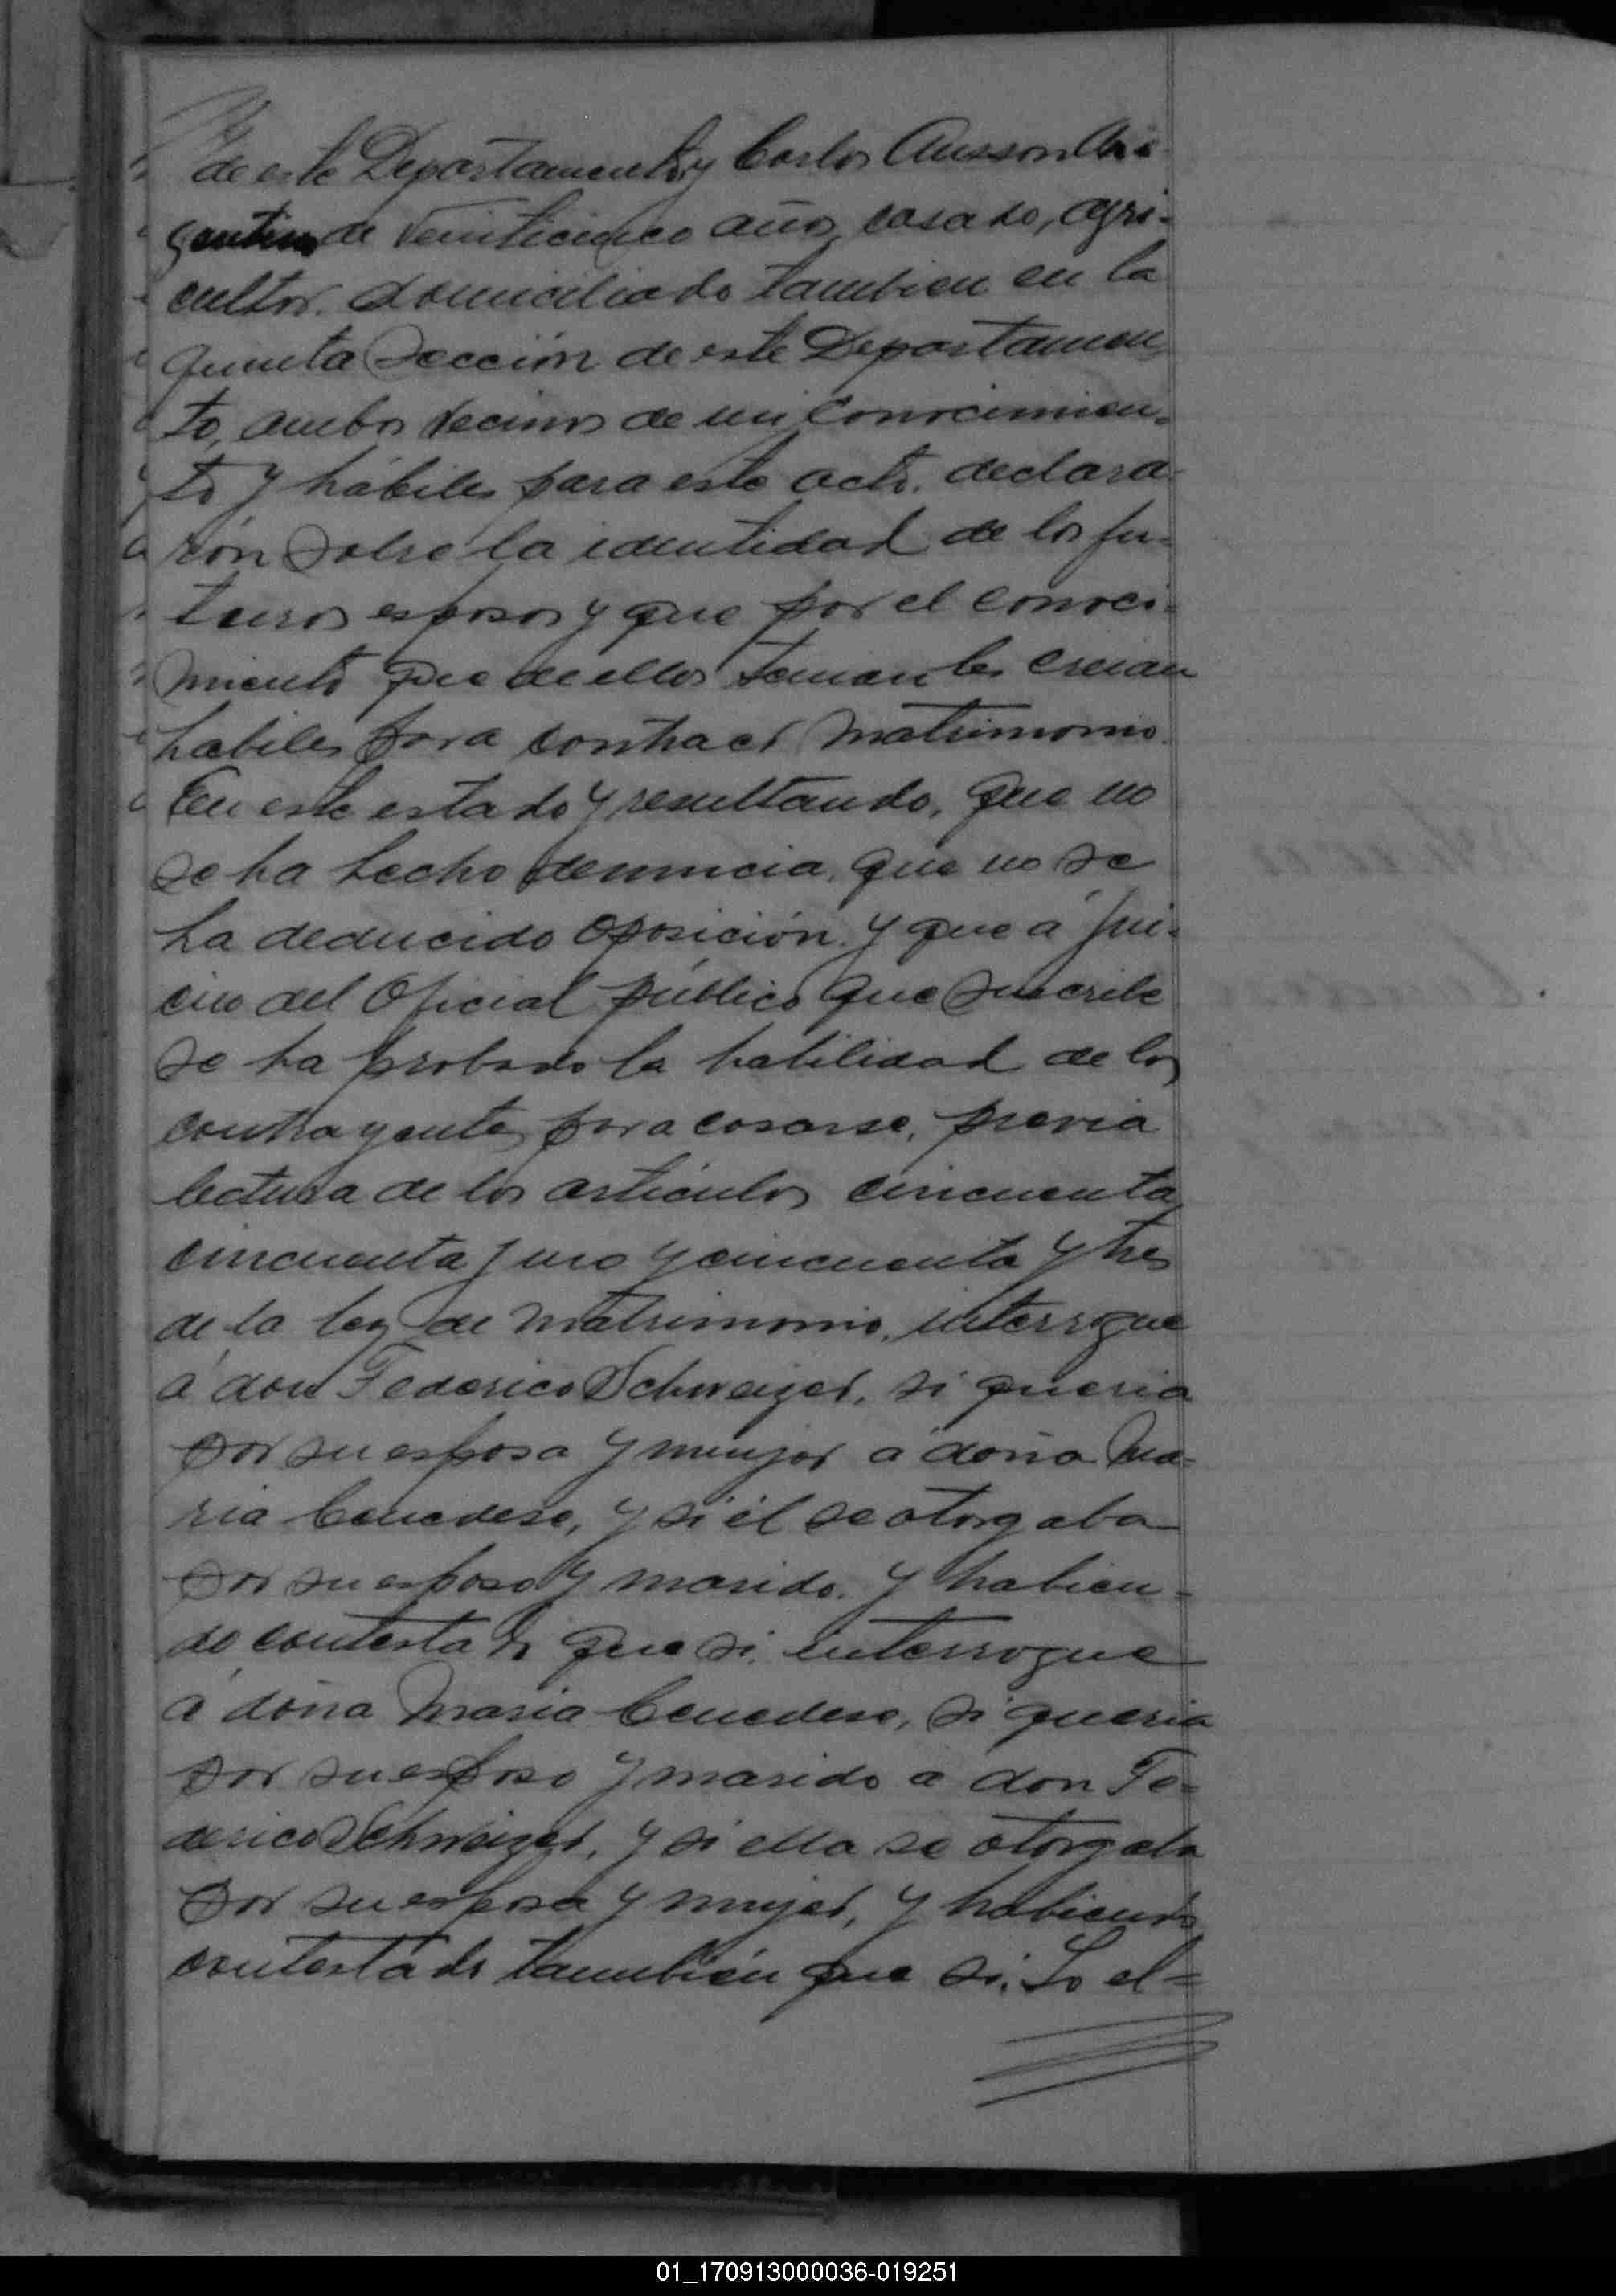 de este Departamento y Carlos Ausson Ar-
gentino de veinticinco años, casado, agri-
cultor. domiciliado tambien en la
quinta Sección de este Departamen
to, ambos vecinos de mi conocimien-
to y hábiles para este acto. declara-
rón sobre la identidad de los fu-
turos esposos y que por el conoci-
miento que de ellos tenian les creian
habiles para contraer matrimonio.
En este estado y resultando, que no
se ha hecho denuncia, que no se
ha deducido oposición. y que a jui-
cio del Oficial público que suscribe
se ha probado la habilidad de los
contrayentes para casarse, previa
lectura de los artículos cincuenta
cincuenta y uno y cincuenta y tres
de la ley de matrimonio, interrogue
á don Federico Schweizer, si queria
por su esposa y mujer a doña Ma-
ria Cenedese, y si él se otorgaba
por su esposo y marido. y habien-
do contestado que si, interrogue
a doña Maria Cenedese, si queria
por su esposo y marido a don Fe-
derico Schweizer, y si ella se otorgaba
por su esposa y mujer, y habiendo
contestado también que si. Yo el-
01_170913000036-019251